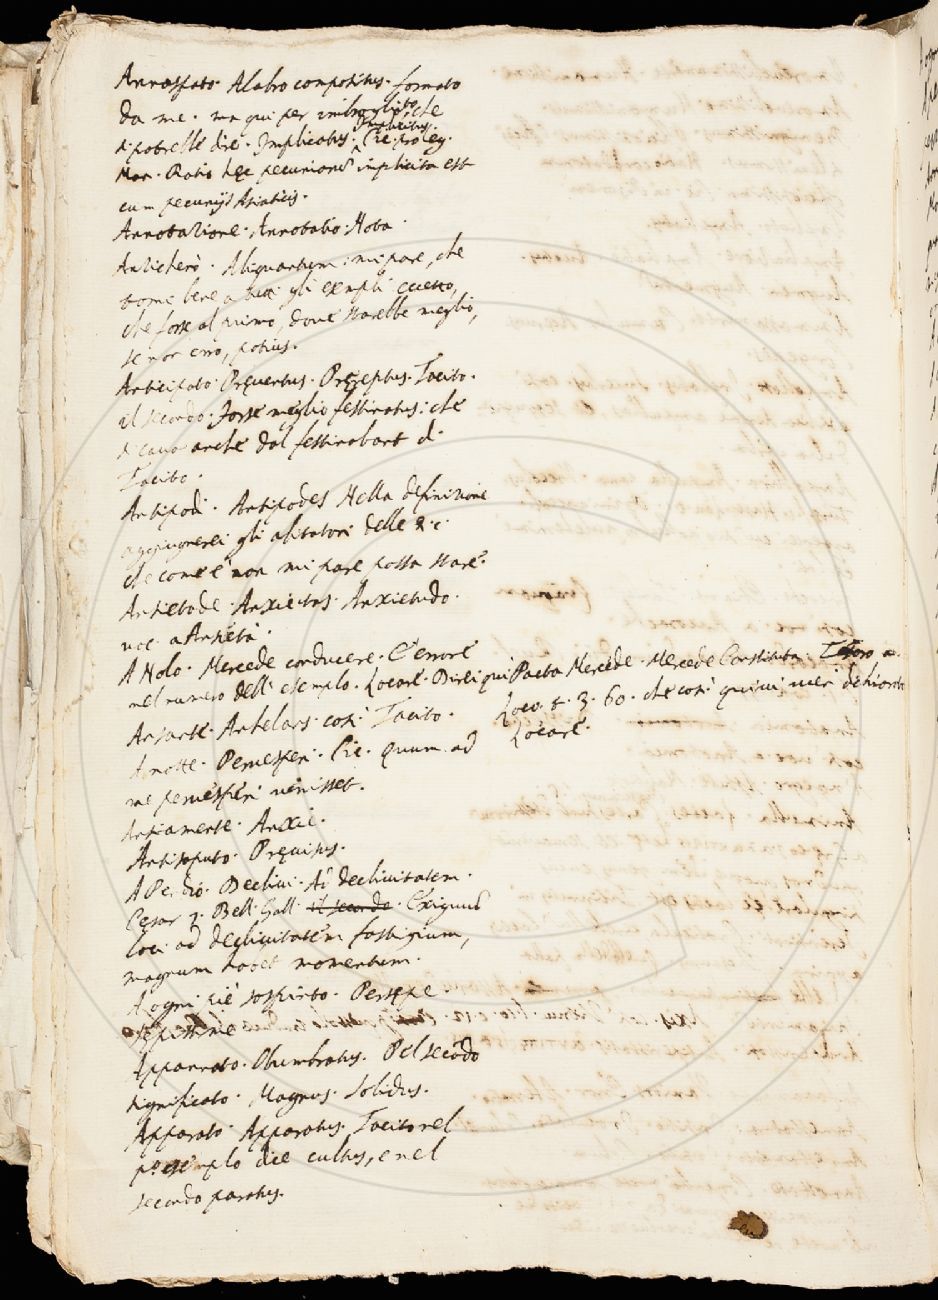 Annaspato. Alabro compositus. formato
da me. ma qui per imbrogliato, che
si potrebbe dire. Implicatus. Implicitus. Cic. pro leg.
Man. Ratio hęc pecuniarū implicita est
cum pecunijs Asiaticis.
Annotazione. Annotatio. Nota.
Anzicherò. Aliquantum: mi pare, che
torni bene a tutti gli exempli eccetto,
che forse al primo, dove starebbe meglio,
se non erro, potius.
Anticipato. Pręventus. Pręceptus. Tacito.
il secondo. Forse meglio festinatus: che
si cava anche dal festinabant di
Tacito.
Antipodi. Antipodes Nella definizione
aggiugnerei gli abitatori delle &c.
che come è non mi pare possa stare.
Ansietade. Anxietas. Anxietudo.
voc. a Ansietà.
A Nolo. Mercede conducere. C'è errore
nel numero dell' esemplo. Locare. Direi qui Pacta Mercede. Mercede Constituta.
Loco &. 3. 60. che così quivi vien dichiarato
Locare.
Ansante. Anhelans. così Tacito.
A notte. Pervesperi. Cic. quum ad
me pervesperi venisset.
Ansiamente. Anxie.
Antisaputo. Pręscitus.
A Pendio. Declivi. Ad declivitatem.
Cesar 7. Bell. Gall. il secondo. Exiguū
loci ad declivitatem fastigium,
magnum habet momentum.
A ogni piè sospinto. Persępe
sępissime
Appannato. Obumbratus. Pel secōdo
significato. Magnus. Solidus.
Apparato. Apparatus. Tacito nel
pº. esemplo dice cultus, e nel
secondo paratus.